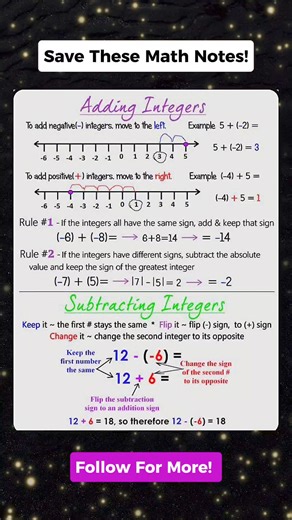 Save These Math Notes!
Adding Integers
To add negative(-) integers, move to the left. Example 5 + (-2) =
5 + (-2) = 3
-6 -5 -4 -3 -2 -1 0 1 2 3 4 5
To add positive(+) integers, move to the right. Example (-4) + 5 =
(-4) + 5 = 1
-6 -5 -4 -3 -2 -1 0 1 2 3 4 5
Rule #1 - If the integers all have the same sign, add & keep that sign
(-6) + (-8)= → 6+8=14 → = -14
Rule #2 - If the integers have different signs, subtract the absolute
value and keep the sign of the greatest integer
(-7) + (5)= → |7| - |5| = 2 → = -2
Subtracting Integers
Keep it ~ the first # stays the same * Flip it ~ flip (-) sign, to (+) sign
Change it ~ change the second integer to its opposite
Keep the
first number
the same
12 - (-6) =
12 + 6 =
Change the sign
of the second #
to its opposite
Flip the subtraction
sign to an addition sign
12 + 6 = 18, so therefore 12 - (-6) = 18
Follow For More!